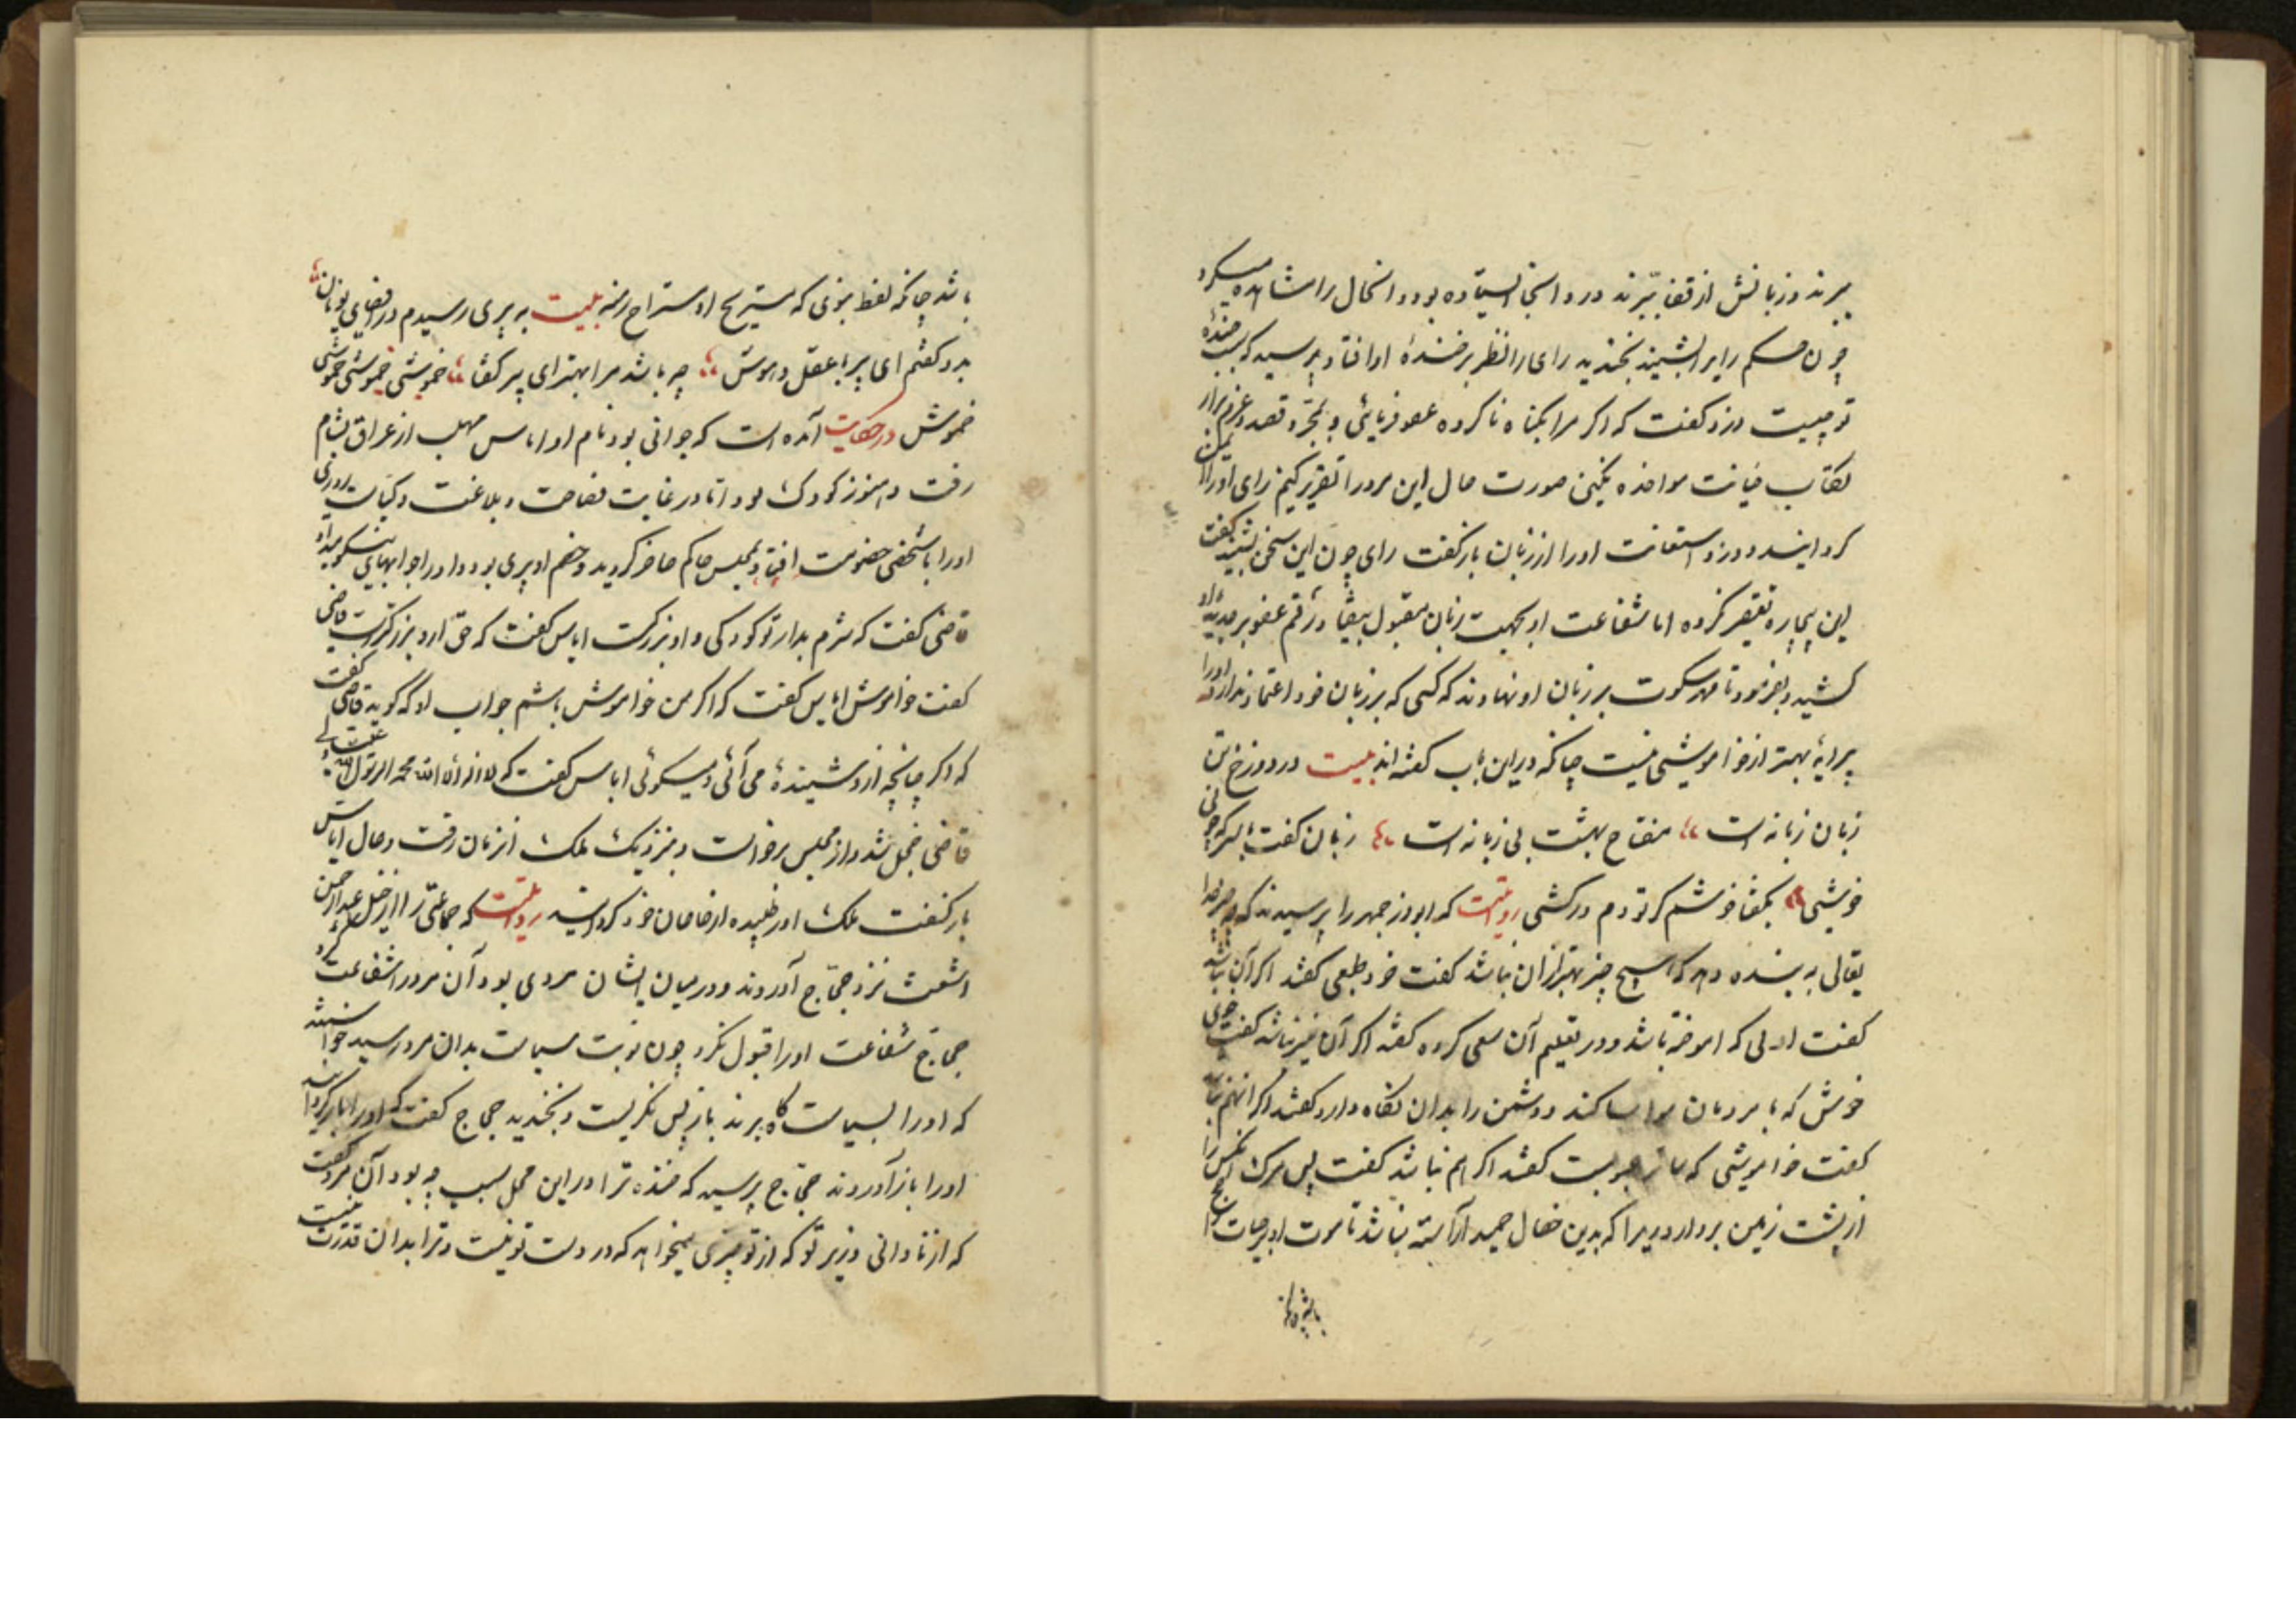 ببرند و زبانش از قفا ببرند درد انجا ایستاده بود و انحال را مشاهده میکرد
چون حکم رای را بشنید بخندید رای را نظر بر خندهٔ او افتاد و پرسید که سبب خندهٔ
تو چیست دزد کفت که اکر مرا بکناه ناکرده عفو فرمائی و بمجرد قصد و عزم
خیانت مواخذه نکنی صورت حال این مرد را تقریر کنم رای او را
کردانید و دزد استعانت او را از زبان باز کفت رای چون این سخن بشنید کفت
این بیچاره تقصیر نکرده اما شفاعت او بجهت زبان مقبول بیفتاد رقم عفو بر
کشید و بفرمود تا مهر سکوت بر زبان او نهادند که کسی که بر زبان خود اعتماد ندارد او را
پیرایهٔ بهتر از خاموشی نیست چنانکه در این باب کفته اند بیت در دوزخ تن
زبان زبانه است مفتاح بهشت بی زبانه است زبان کفت
خوشی بکفتا خوشم کر تو دم درکشی روایتست که ابوزرجمهر را پرسیدند که
تعالی به بنده دهد که هیچ چیز بهتر از ان نباشد کفت خرد طبعی کفتند اکر آن نباشد
کفت ادبی که اموخته باشد و در تعلیم آن سعی کرده کفتند اکر آن نیز نباشد کفت خوی
خوش که با مردمان مواسا کند و دشمن را بدان نکاه دارد کفتند اکر انهم نباشد
کفت خاموشی که ساتر عیوبست کفتند اکر اهم نباشد کفت پس مرک انکس را
از پشت زمین بردارد زیرا که بدین خصال حمید آراسته نباشد تا موت او بر حیات راجح
باشد چنانکه
باشد چنانکه لفظ نبوی که مستریح او مستراح منه بیت به پیری رسیدم در اقصای یونان
بدو کفتم ای پیر با عقل و هوش چه باشد مرا بهتر ای پیر کفتا خموشی خموشی خموشی
خموش در حکایت آمده است که جوانی بود نام او ایاس مهلب از عراق بشام
رفت و هنوز کودک بود اما در غایت فصاحت و بلاغت و کیاست روزی
او را با شخصی خصومت افتاد بمجلس حاکم حاضر کردید و خصم او پیری بود و او را جوابهای نیکو میداد
قاضی کفت که شرم بدار تو کودکی و او بزرکست ایاس کفت که حق از و بزرکترست قاضی
کفت خاموش ایاس کفت که اکر من خاموش باشم جواب او که کوید قاضی کفت
که اکر چنانچه از در ستیزهٔ می آئی و میکوئی ایاس کفت که لا اله الا الله محمد الرسول الله
قاضی خجل شد و از مجلس برخواست و بنزدیک ملک انزمان رفت و حال ایاس
باز کفت ملک او را طلبیده از خاصان خود کردانید روایتست که جماعتی را از خیل عبدالرحمن
اشعث نزد حجاج آوردند و در میان ایشان مردی بود آن مرد را شفاعت کرد
حجاج شفاعت او را قبول نکرد چون نوبت سیاست بدان مرد رسید خواستند
که او را بسیاست کاه برند باز پس نکریست و بخندید حجاج کفت که او را باز کردانید
او را باز آوردند حجاج پرسید که خنده ترا در این محل سبب چه بود آن مرد کفت
که از نادانی وزیر تو که از تو چیزی میخواهد که در دست تو نیست و ترا بدان قدرت نیست